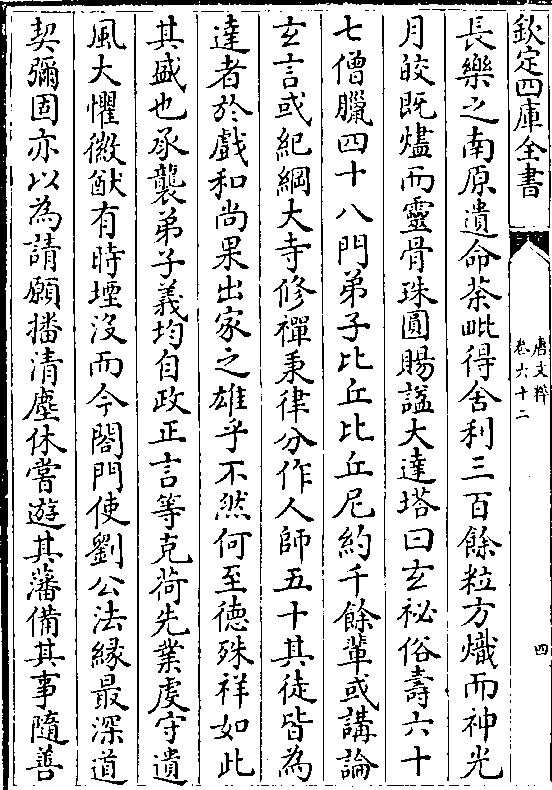 欽定四庫全書
唐文粹
卷六十二
四
長樂之南原遺命荼毗得舍利三百餘粒方熾而神光
月皎既燼而靈骨珠圓賜諡大達塔曰玄祕俗壽六十
七僧臘四十八門弟子比丘比丘尼約千餘輩或講論
玄言或紀綱大寺修禪秉律分作人師五十其徒皆為
達者於戲和尚果出家之雄乎不然何至德殊祥如此
其盛也承襲弟子義均自政正言等克荷先業虔守遺
風大懼徽猷有時堙沒而今閤門使劉公法緣最深道
契彌固亦以為請願播清塵休嘗遊其藩備其事隨善